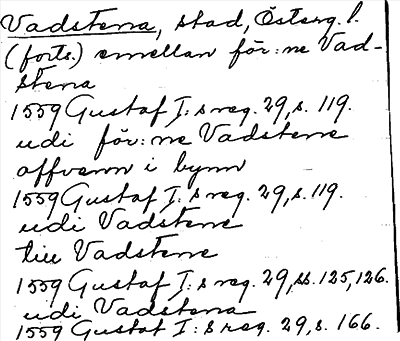 Vadstena, stad, Österg. l.
(forts.) emellan för:ne Vad-
stena
1559 Gustaf I:s reg. 29, s. 119.
udi för:ne Vadstene
offvenn i bynn
1559 Gustaf I:s reg. 29, s. 119.
udi Vadstene
till Vadstene
1559 Gustaf I:s reg. 29, ss. 125, 126.
udi Vadstena
1559 Gustaf I:s reg. 29, s. 166.